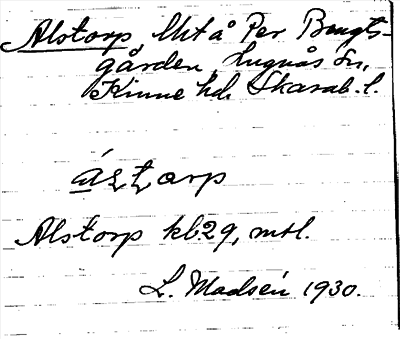 Alstorp, lht å Per Bengts-
gården, Lugnås sn,
Kinne hd. Skarab. l.
Alstorp kb 29, mtl.
L. Modsén 1930.